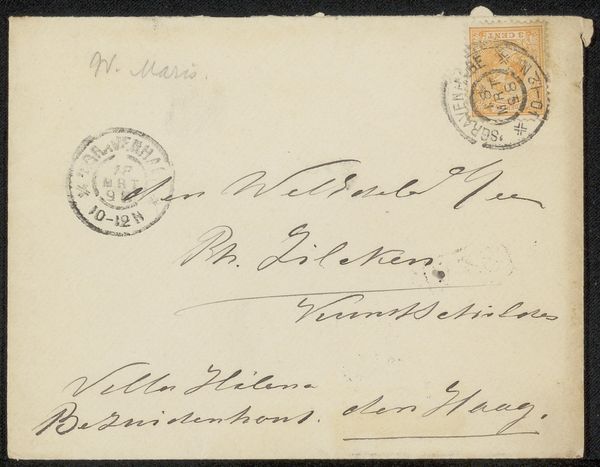 3 CENT
'SGRAVENHAGE
18
MRT
95
10-12N
W. Maris.
'SGRAVENHAGE
18
MRT
95
10-12N
den WelEdele Heer
Ph. Zilcken
Kunstschilder
Villa Hélène
Bezuidenhout. den Haag.